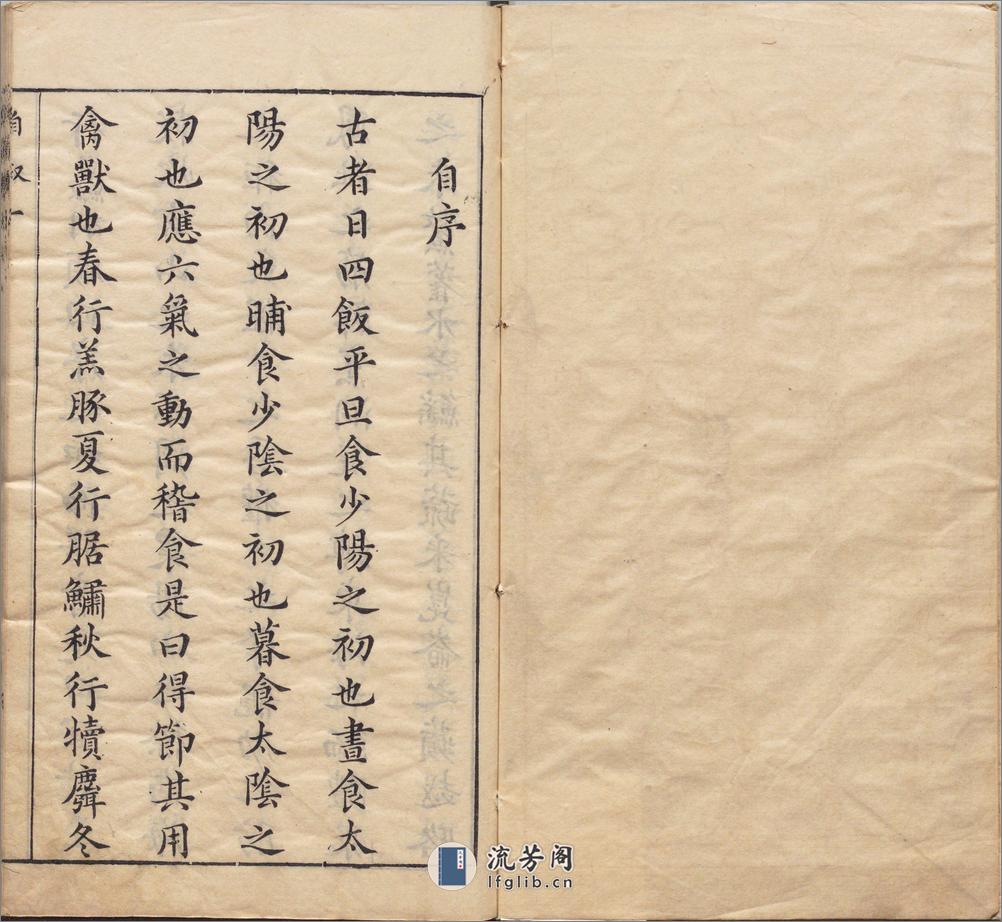 自序
古者日四飯平旦食少陽之初也晝食太
陽之初也晡食少陰之初也暮食太陰之
初也應六氣之動而稽食是曰得節其用
禽獸也春行羔豚夏行腒鱐秋行犢麛冬
自叙一
流芳阁
lfglib.cn